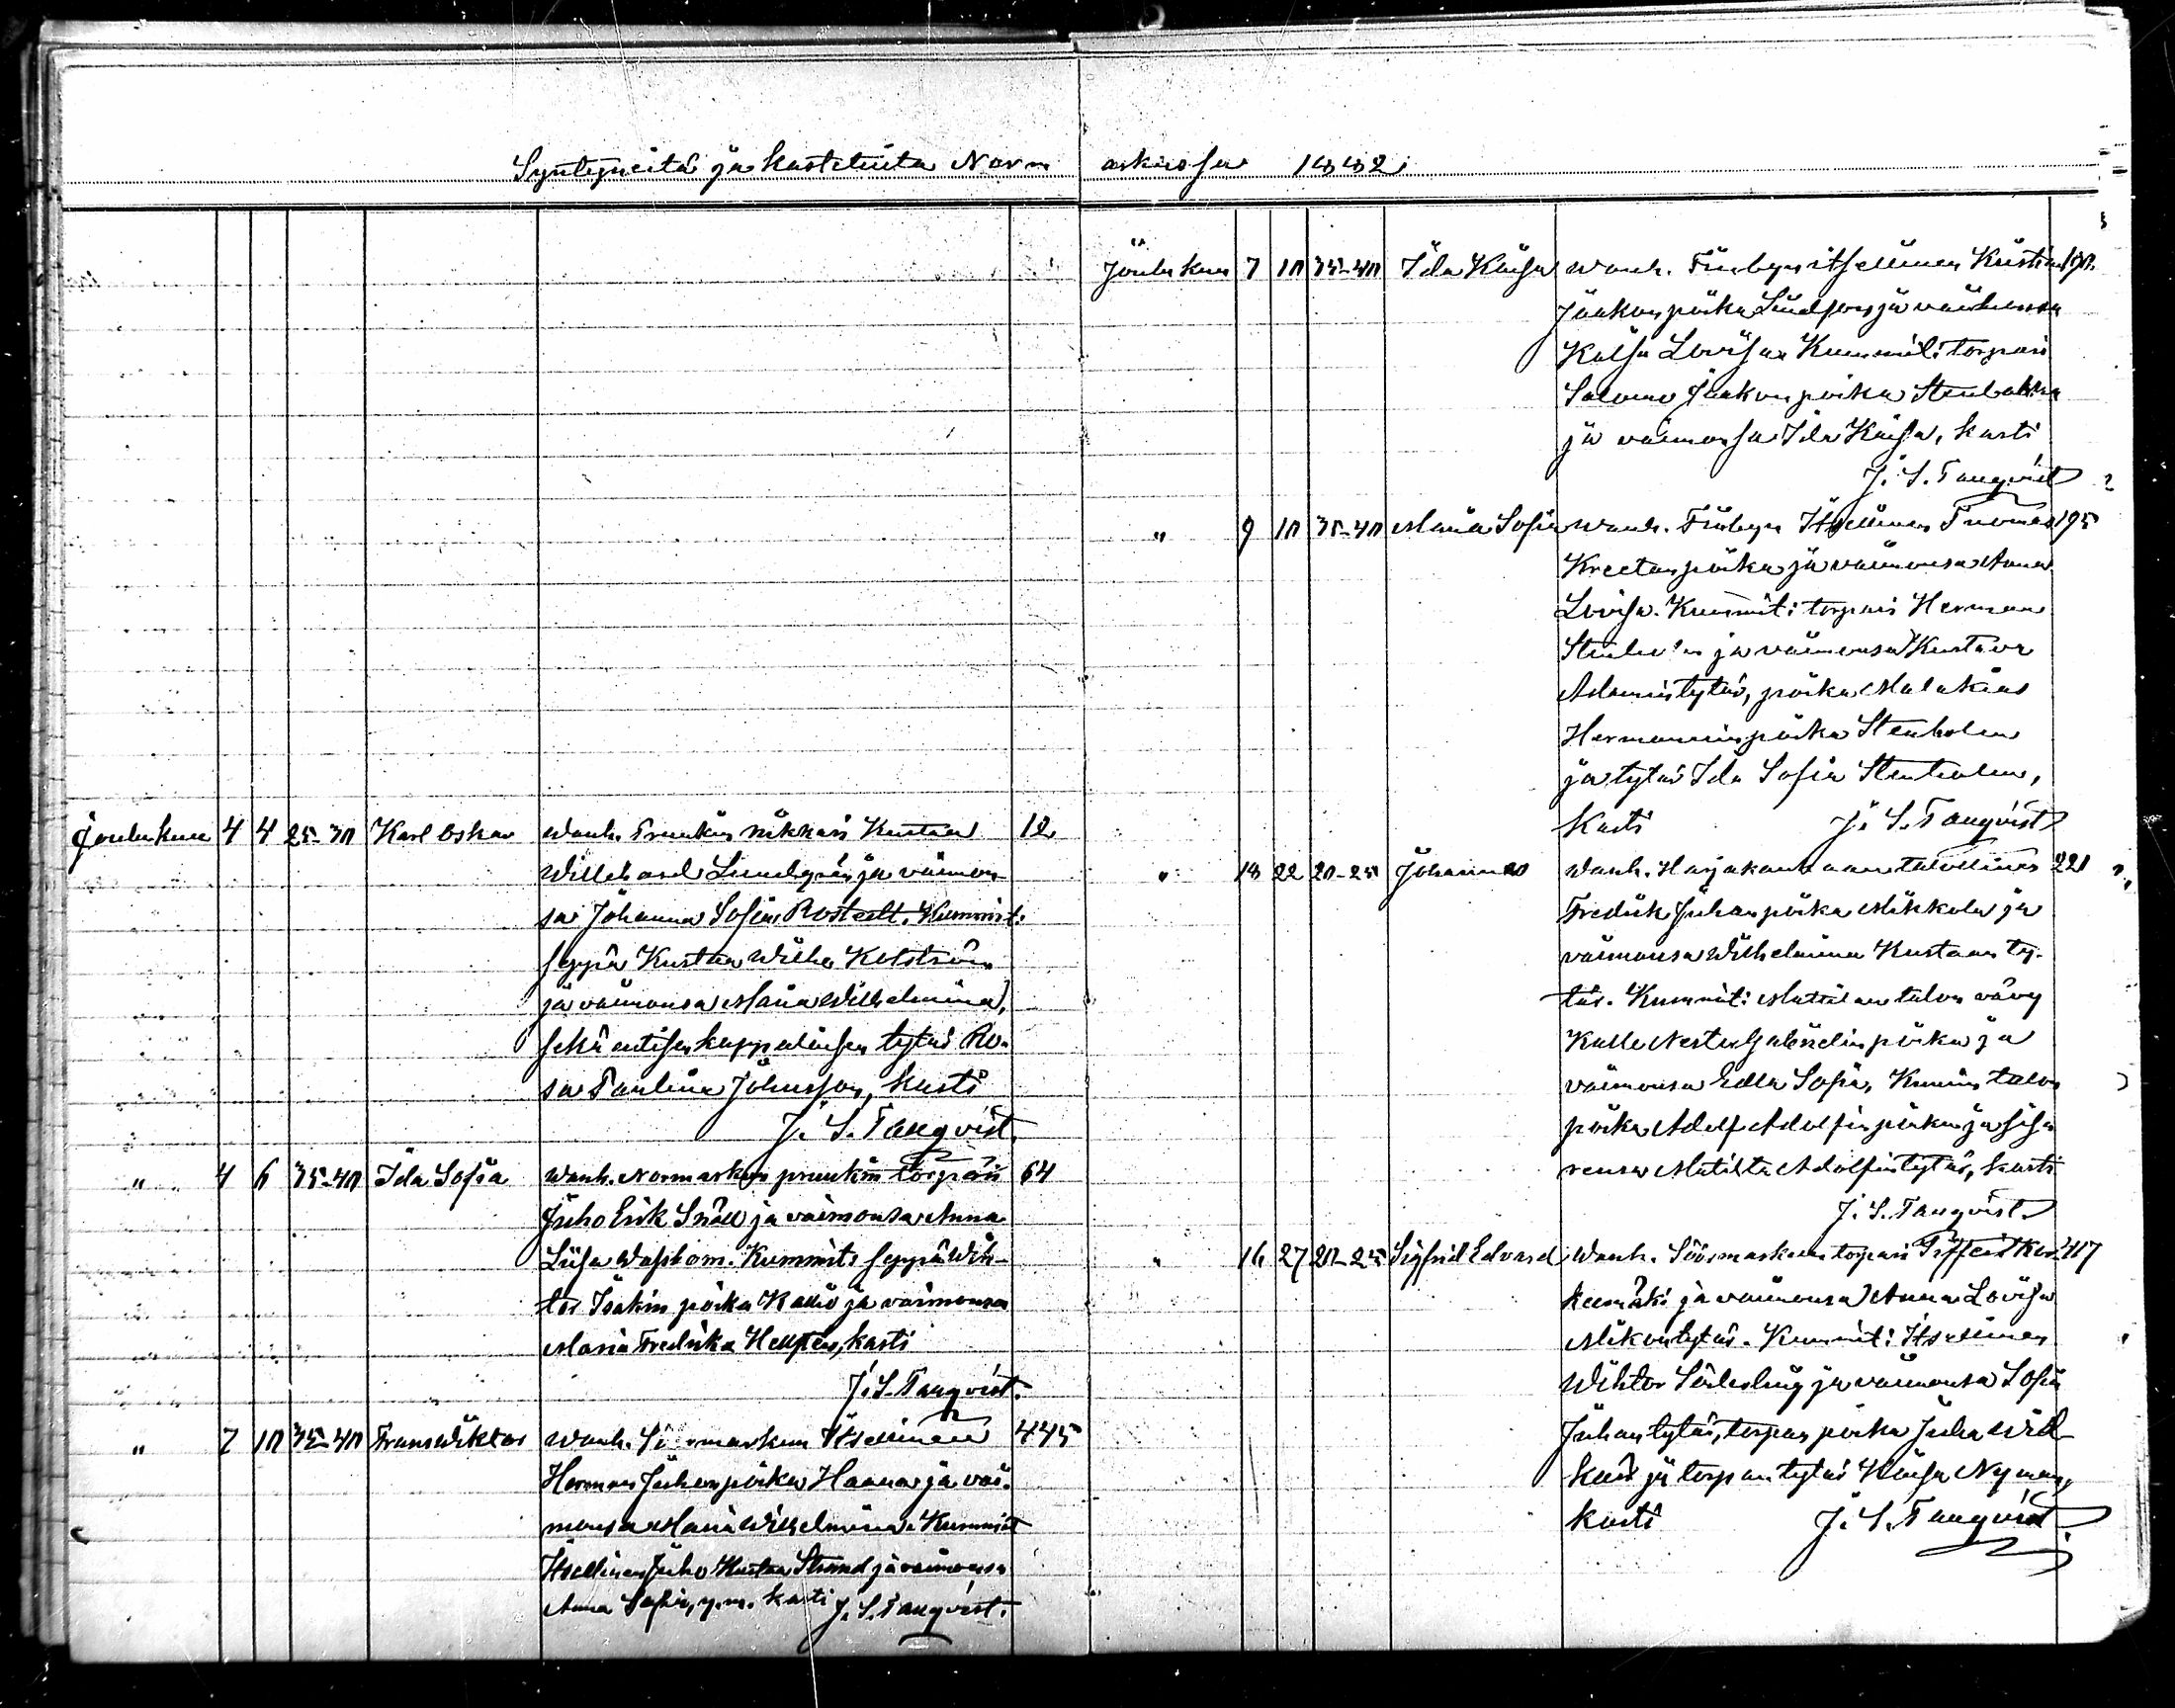 Syntyneitä ja kastetuita Norm arkussa 1882
Joulukuu 4 4 25-30 Karl Oskar Wanh. Pruukin nikkari Kustaa 12
Willehard Lundgrén ja vaimon
sa Johanna Sofia Rostedt. Kummit:
seppä Kustaa Wilho
ja vaimonsa Maria Wilhelmina,
sekä entisen kappalaisen tytär Ro-
sa Paulina Johnsson, kasti
J. S. Tanqvist.
" 4 6 35-40 Ida Sofia Wanh. Normarkun pruukin torpari 64
Juho Erik Snäll ja vaimonsa Anna
Liisa Kummit: seppä Wih-
tor Isakin poika Kallio ja vaimonsa
Maria Fredrika kasti
J. S. Tanqvist.
" 7 10 35-40 Frans Wiktor Wanh. Söörmarkun Itsellinen 445
Herman Juhonpoika Haana ja vai-
monsa Maria Wilhelmina. Kummit
Itsellinen Juho Kustaa Strand ja vaimonsa
Anna Sofia, y.m. kasti J. S. Tanqvist.
Joulukuu 7 10 35-40 Ida Kaisa Wanh. Finbyn itsellinen Kristian
Jaakonpoika Lindfors ja vaimonsa
Kaisa Lovisa. Kummit: torpari
Salomo Jaakonpoika Stenbakka
ja vaimonsa Ida Kaisa, kasti
J. S. Tanqvist
" 9 10 35-40 Maria Sofia Wanh. Finbyn Itsellinen Tuomas 195
Kreetanpoika ja vaimonsa Anna
Lovisa. Kummit: torpari Herman
ja vaimonsa Kustava
Adamintytär, poika Malakias
Hermanninpoika Stenholm
ja tytär Ida Sofia Stenholm,
kasti J. S. Tanqvist
" 18 22 20-25 Johannes Wanh. Harjakankaan talollinen 221
Fredrik Juhanpoika Mikkola ja
vaimonsa Wilhelmina Kustaan ty-
tär. Kummit: Mattilan talon vävy
Kalle Nestor Gabrielinpoika ja
vaimonsa Edla Sofia, talon
poika Adolf Adolfinpoika ja sisa
rensa Matilta Adolfintytär, kasti
J. S. Tanqvist.
" 16 27 20-25 Sigfrid Edvard Wanh. Söörmarkun torpari 417
keemäki ja vaimonsa Anna Lovisa
Mikontytär. Kummit: Itsellinen
Wihtor Söderling ja vaimonsa Sofia
Juhantytär, torpan poika Juha Wil-
ja torpan tytär Kaisa Nyman,
kasti J. S. Tanqvist